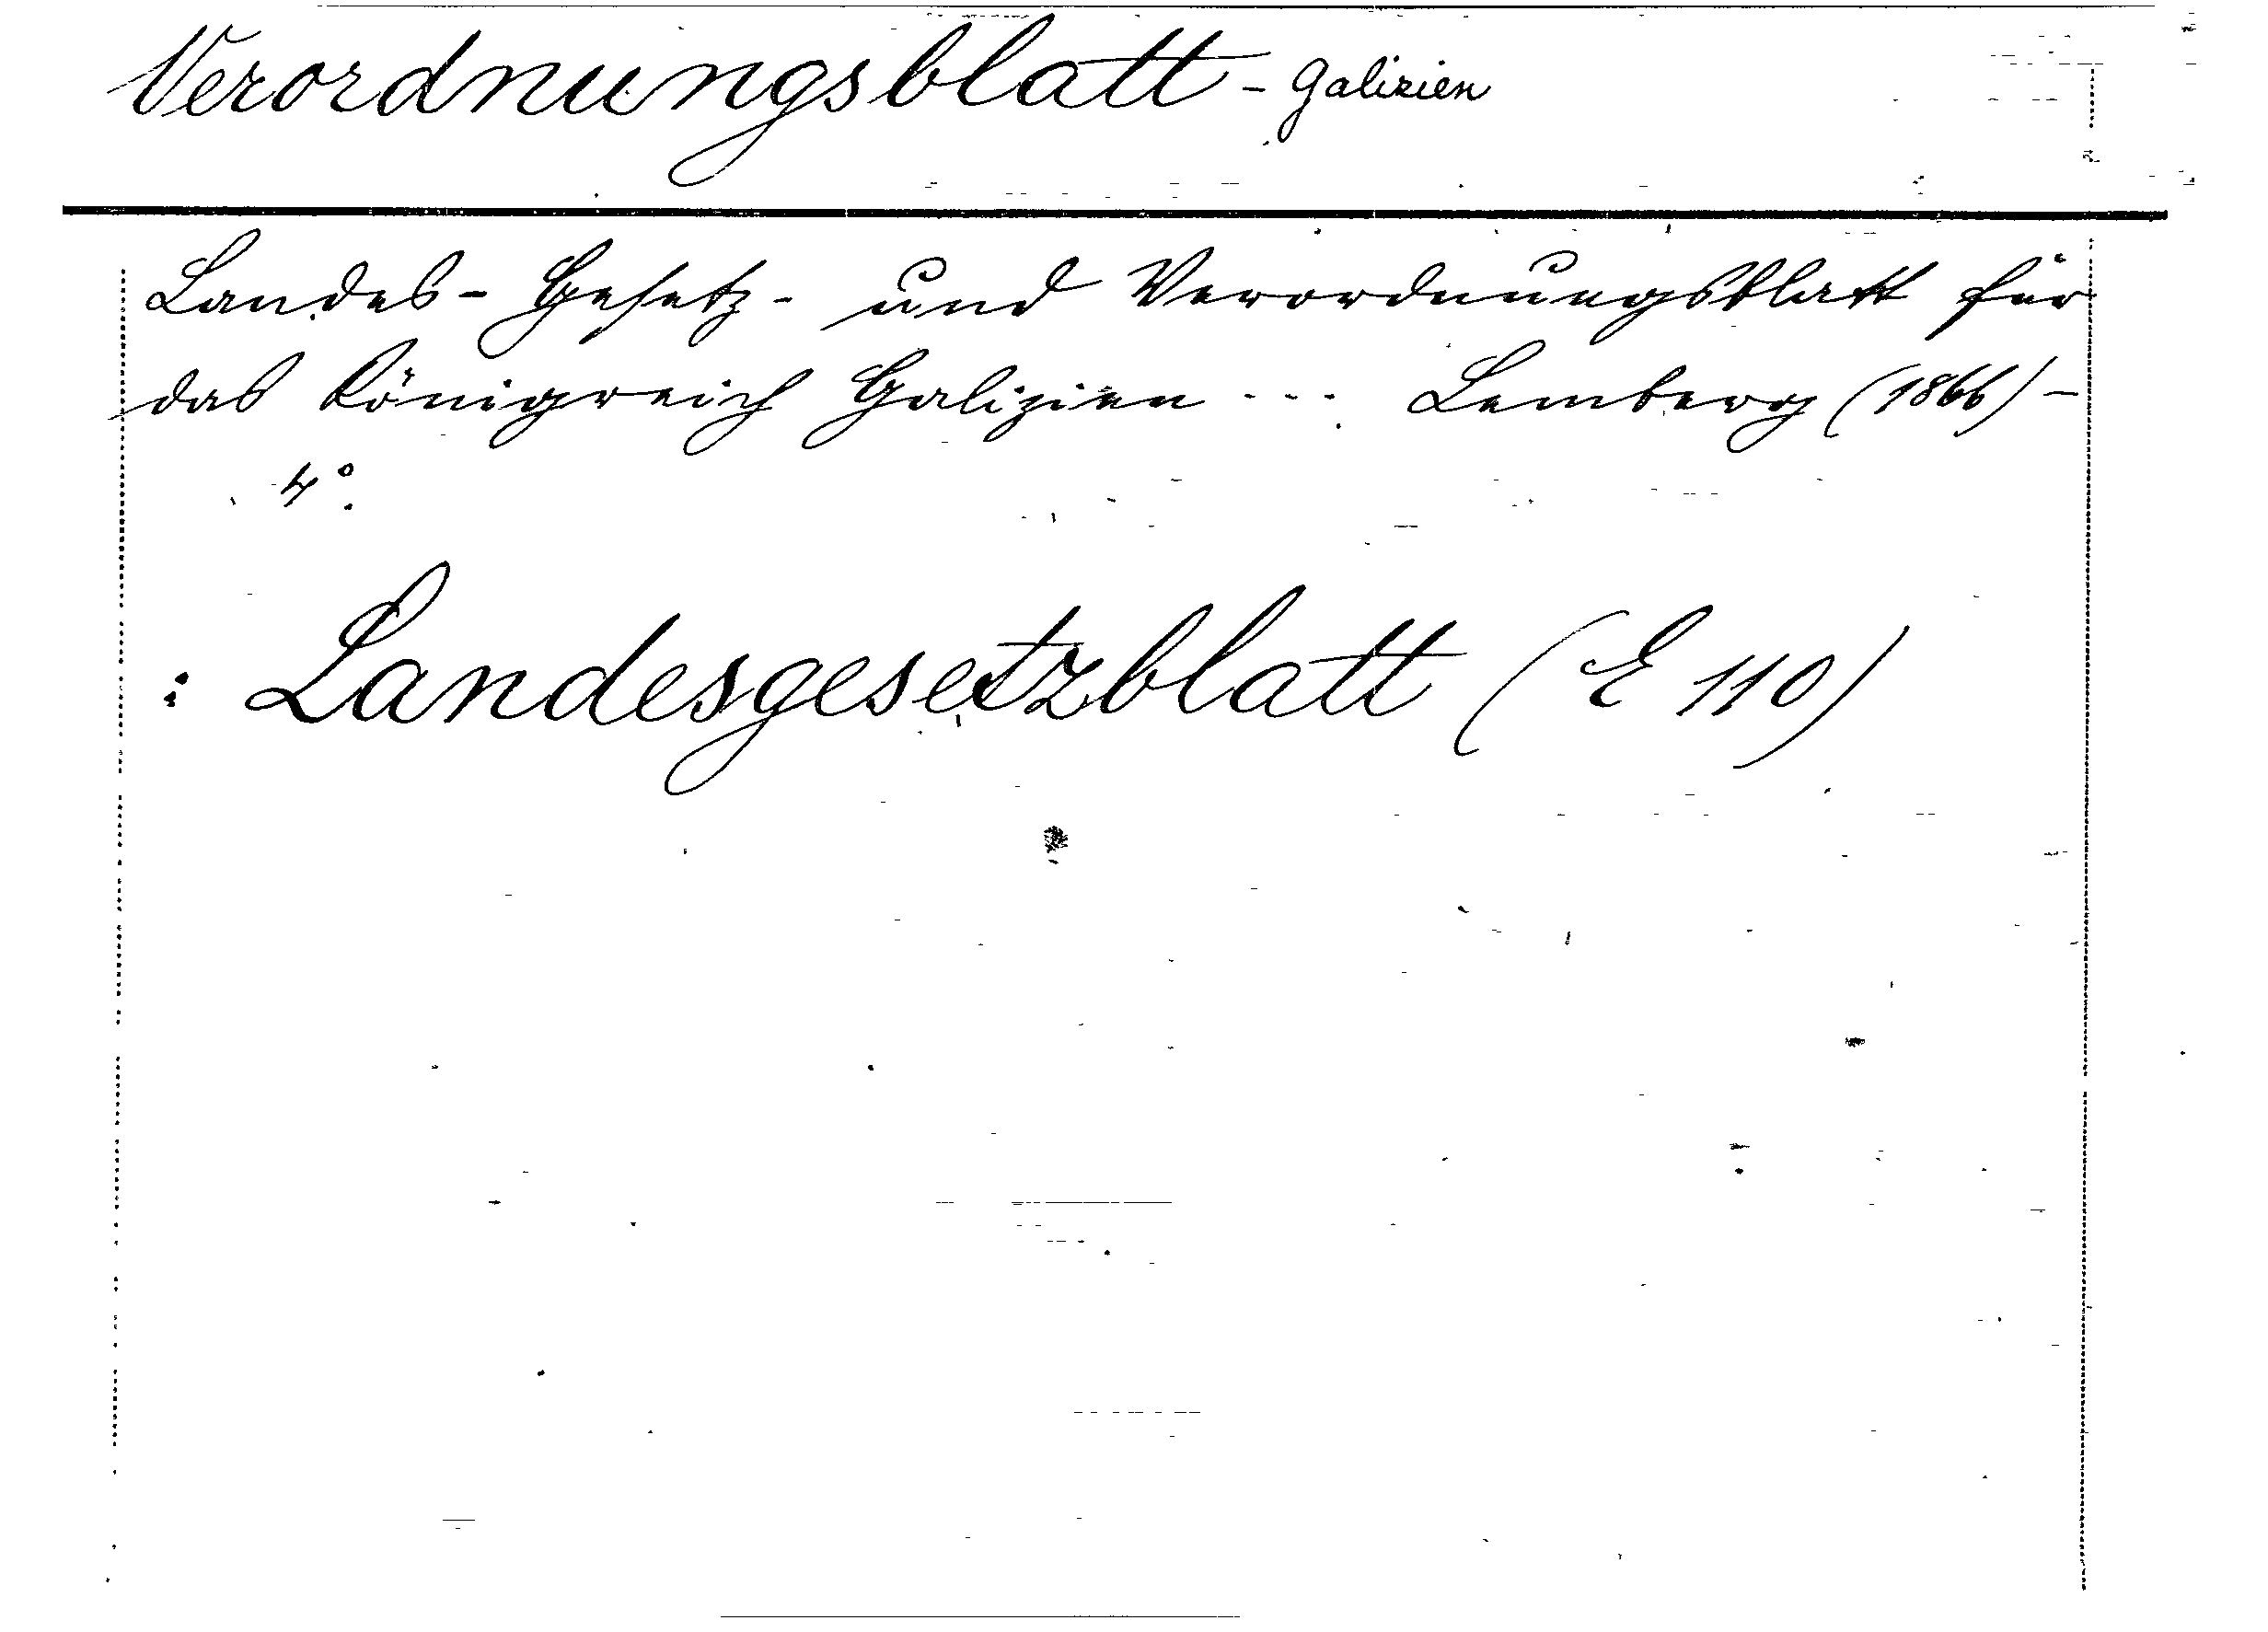 Verordnungsblatt - Galizien
Landes-Gesetz- und Verordnungsblatt für
das Königreich Galizien ... Lemberg (1866) -
4°.
: Landesgesetzblatt (E 110)